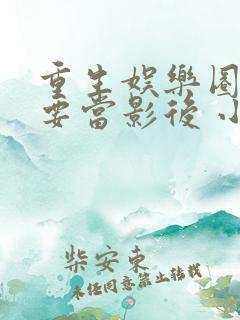 重生娛樂圈
要當影後小
柴安東
未經同意禁止轉載